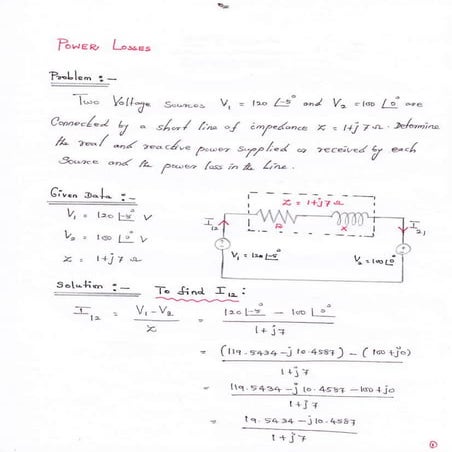 POWER LOSSES
Problem :-
Two Voltage Sources V₁ = 120 ∠-5° and V₂ = 100 ∠0° are
Connected by a short line of impedance Z = 1+j7 Ω. Determine
the real and reactive power supplied or received by each
Source and the power loss in the line.
Given Data :-
V₁ = 120 ∠-5° V
V₂ = 100 ∠0° V
Z = 1+j7 Ω
Z = 1+j7 Ω
R X
I₁₂ I₂₁
V₁ = 120 ∠-5° V₂ = 100 ∠0°
Solution :- To find I₁₂ :
I₁₂ = V₁ - V₂ / Z = 120 ∠-5° - 100 ∠0° / 1+j7
= (119.5434 - j10.4587) - (100 + j0) / 1+j7
= 119.5434 - j10.4587 - 100 + j0 / 1+j7
= 19.5434 - j10.4587 / 1+j7